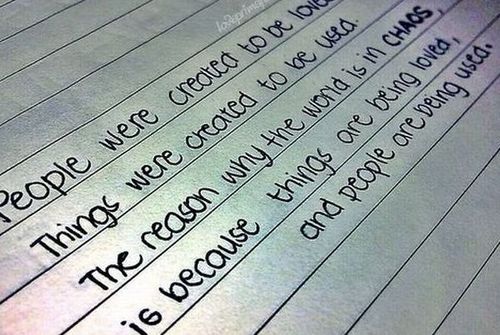 People were created to be loved.
Things were created to be used.
The reason why the world is in CHAOS,
is because things are being loved,
and people are being used.